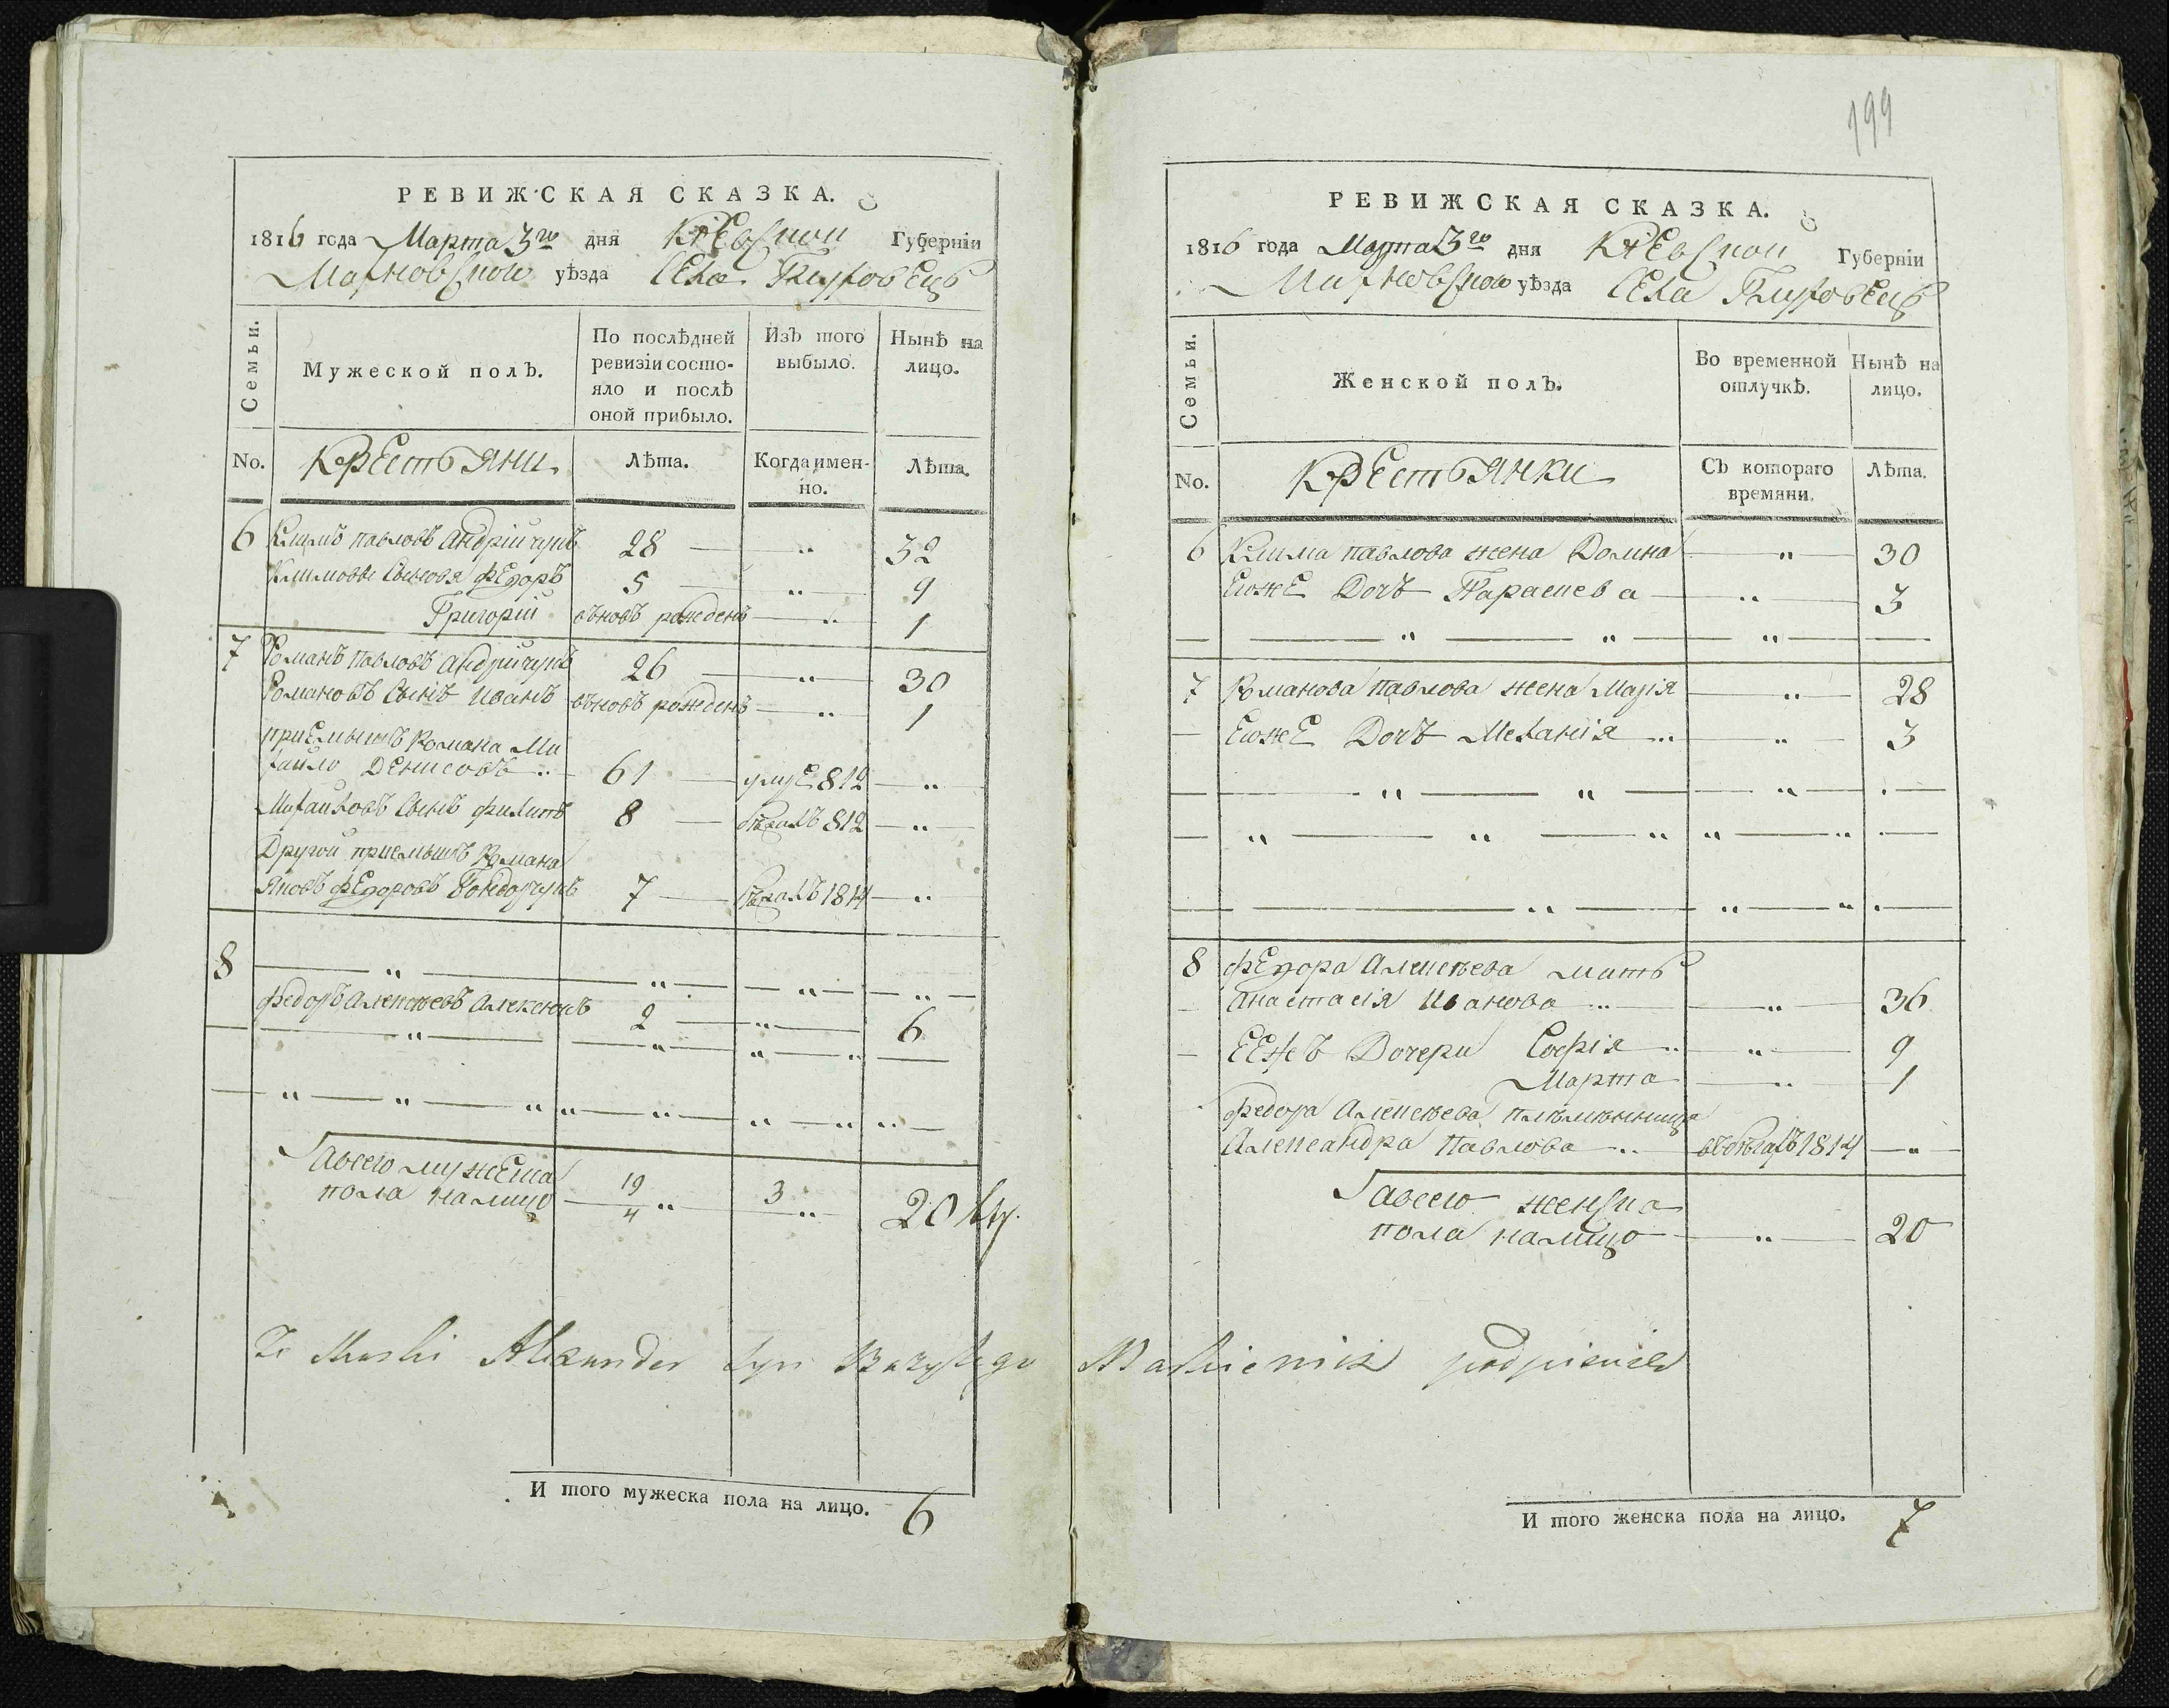 199
РЕВИЖСКАЯ СКАЗКА.
1816 года Марта 3го дня Кіевской Губерніи
Махновского уѣзда Села Глуховецъ
Семьи. Мужеской полъ. По послѣдней ревизіи состояло и послѣ оной прибыло. Изъ того выбыло. Нынѣ на лицо.
No. Крестьяни Лѣта. Когда именно. Лѣта.
6 Климъ павловъ Андрійчукъ 28 — „ 32
Климовы Сыновя федоръ 5 — „ 9
Григорій вновъ рожденъ — „ 1
7 Романъ Павловъ Андрійчукъ 26 — „ 30
Романовъ Сынъ Иванъ вновъ рожденъ — „ 1
приемышъ Романа Ми
хайло Денисовъ „ 61 — умре 812 — „
Михайловъ Сынъ филипъ 8 — бѣжалъ 812 — „
Другой приемышъ Романа
Яковъ федоровъ Бондарчукъ 7 — бѣжалъ 1814 — „
8 — „ — „ — „ — „ —
федоръ Алексѣевъ Алексюкъ 2 — „ — 6
— „ — „ — „ — „ —
— „ — „ — „ „ — „ — „ — „ „ —
Авсего мужеска
пола налицо 19/4 „ 3 „ 20
РЕВИЖСКАЯ СКАЗКА.
1816 года Марта 3го дня Кіевской Губерніи
Махновского уѣзда Села Глуховецъ
Семьи. Женской полъ. Во временной отлучкѣ. Нынѣ на лицо.
No. Крестьянки Съ котораго времяни. Лѣта.
6 Клима павлова жена Домна — „ — 30
Егоже Дочъ Параскева — „ — 3
— „ — „ — „ —
7 Романова Павлова жена Марія — „ — 28
— Егоже Дочъ Меланія „ — „ — 3
— „ — „ — „ — . —
— „ — „ — „ „ — „ . —
— „ — „ — „ . —
8 федора Алексѣева мать
— Анастасія Иванова „ — „ — 36
— Ееже Дочери Софія „ — „ — 9
Марта — „ — 1
федора Алексѣева племѣнница
Александра Павлова „ — въ 1814 — „ —
Авсего женска
пола налицо — „ — 20
Alexander syn podpisalem
И того мужеска пола на лицо. 6
И того женска пола на лицо. 7